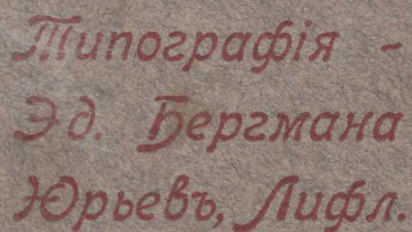 Типографія -
Эд. Бергмана
Юрьевъ, Лифл.